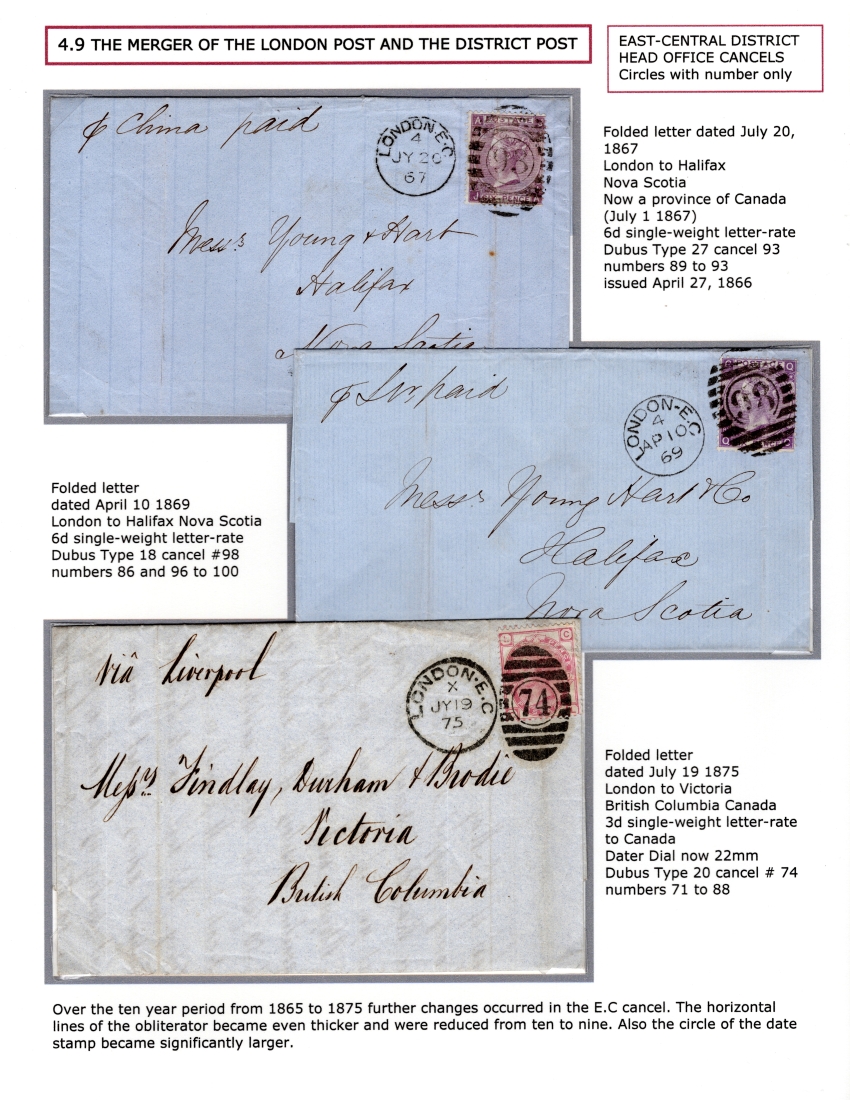 4.9 THE MERGER OF THE LONDON POST AND THE DISTRICT POST
EAST-CENTRAL DISTRICT
HEAD OFFICE CANCELS
Circles with number only
China paid
LONDON·E.C
4
JY 20
67
93
Messrs Young & Hart
Halifax
Nova Scotia
Folded letter dated July 20,
1867
London to Halifax
Nova Scotia
Now a province of Canada
(July 1 1867)
6d single-weight letter-rate
Dubus Type 27 cancel 93
numbers 89 to 93
issued April 27, 1866
paid
LONDON-E.C
4
AP 10
69
98
POSTAGE
Messrs Young Hart & Co
Halifax
Nova Scotia
Folded letter
dated April 10 1869
London to Halifax Nova Scotia
6d single-weight letter-rate
Dubus Type 18 cancel #98
numbers 86 and 96 to 100
viâ Liverpool
LONDON·E.C
X
JY 19
75
L C
74
Messrs Findlay, Durham & Brodie
Victoria
British Columbia
Folded letter
dated July 19 1875
London to Victoria
British Columbia Canada
3d single-weight letter-rate
to Canada
Dater Dial now 22mm
Dubus Type 20 cancel # 74
numbers 71 to 88
Over the ten year period from 1865 to 1875 further changes occurred in the E.C cancel. The horizontal
lines of the obliterator became even thicker and were reduced from ten to nine. Also the circle of the date
stamp became significantly larger.